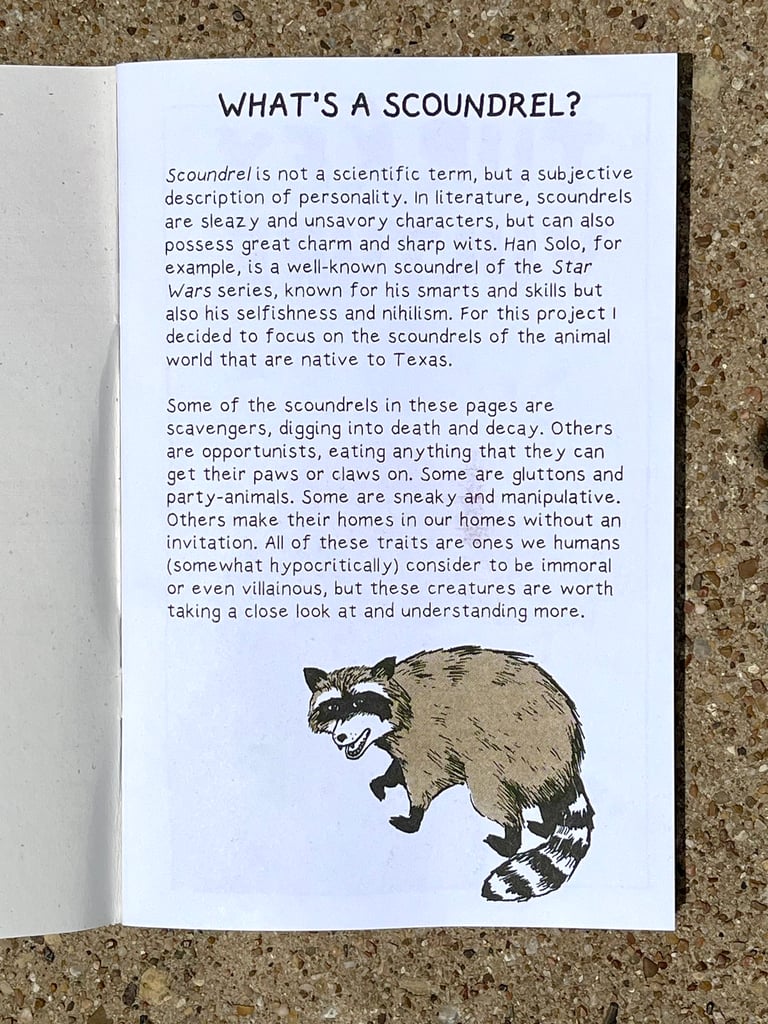 WHAT'S A SCOUNDREL?
Scoundrel is not a scientific term, but a subjective
description of personality. In literature, scoundrels
are sleazy and unsavory characters, but can also
possess great charm and sharp wits. Han Solo, for
example, is a well-known scoundrel of the Star
Wars series, known for his smarts and skills but
also his selfishness and nihilism. For this project I
decided to focus on the scoundrels of the animal
world that are native to Texas.
Some of the scoundrels in these pages are
scavengers, digging into death and decay. Others
are opportunists, eating anything that they can
get their paws or claws on. Some are gluttons and
party-animals. Some are sneaky and manipulative.
Others make their homes in our homes without an
invitation. All of these traits are ones we humans
(somewhat hypocritically) consider to be immoral
or even villainous, but these creatures are worth
taking a close look at and understanding more.